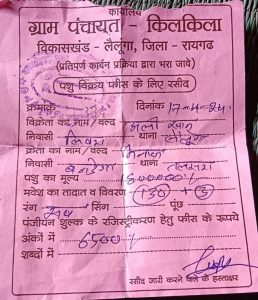 कार्यालय
ग्राम पंचायत - किलकिला
विकासखंड - लैलूंगा, जिला - रायगढ़
(प्रतिपूर्ण कार्बन प्रक्रिया द्वारा भरा जावे)
पशु विक्रय फीस के लिए रसीद
क्रमांक दिनांक 17-4-24
विक्रेता का नाम / वल्द अली खान
निवासी थाना
क्रेता का नाम / वल्द
निवासी थाना
पशु का मूल्य
मवेशी का तादात व विवरण (130) + (3)
रंग सिंग पूंछ
पंजीयन शुल्क के रजिस्ट्रीकरण हेतु फीस के रूपये
अंकों में 6500/-
शब्दों में
रसीद जारी करने वाले के हस्ताक्षर